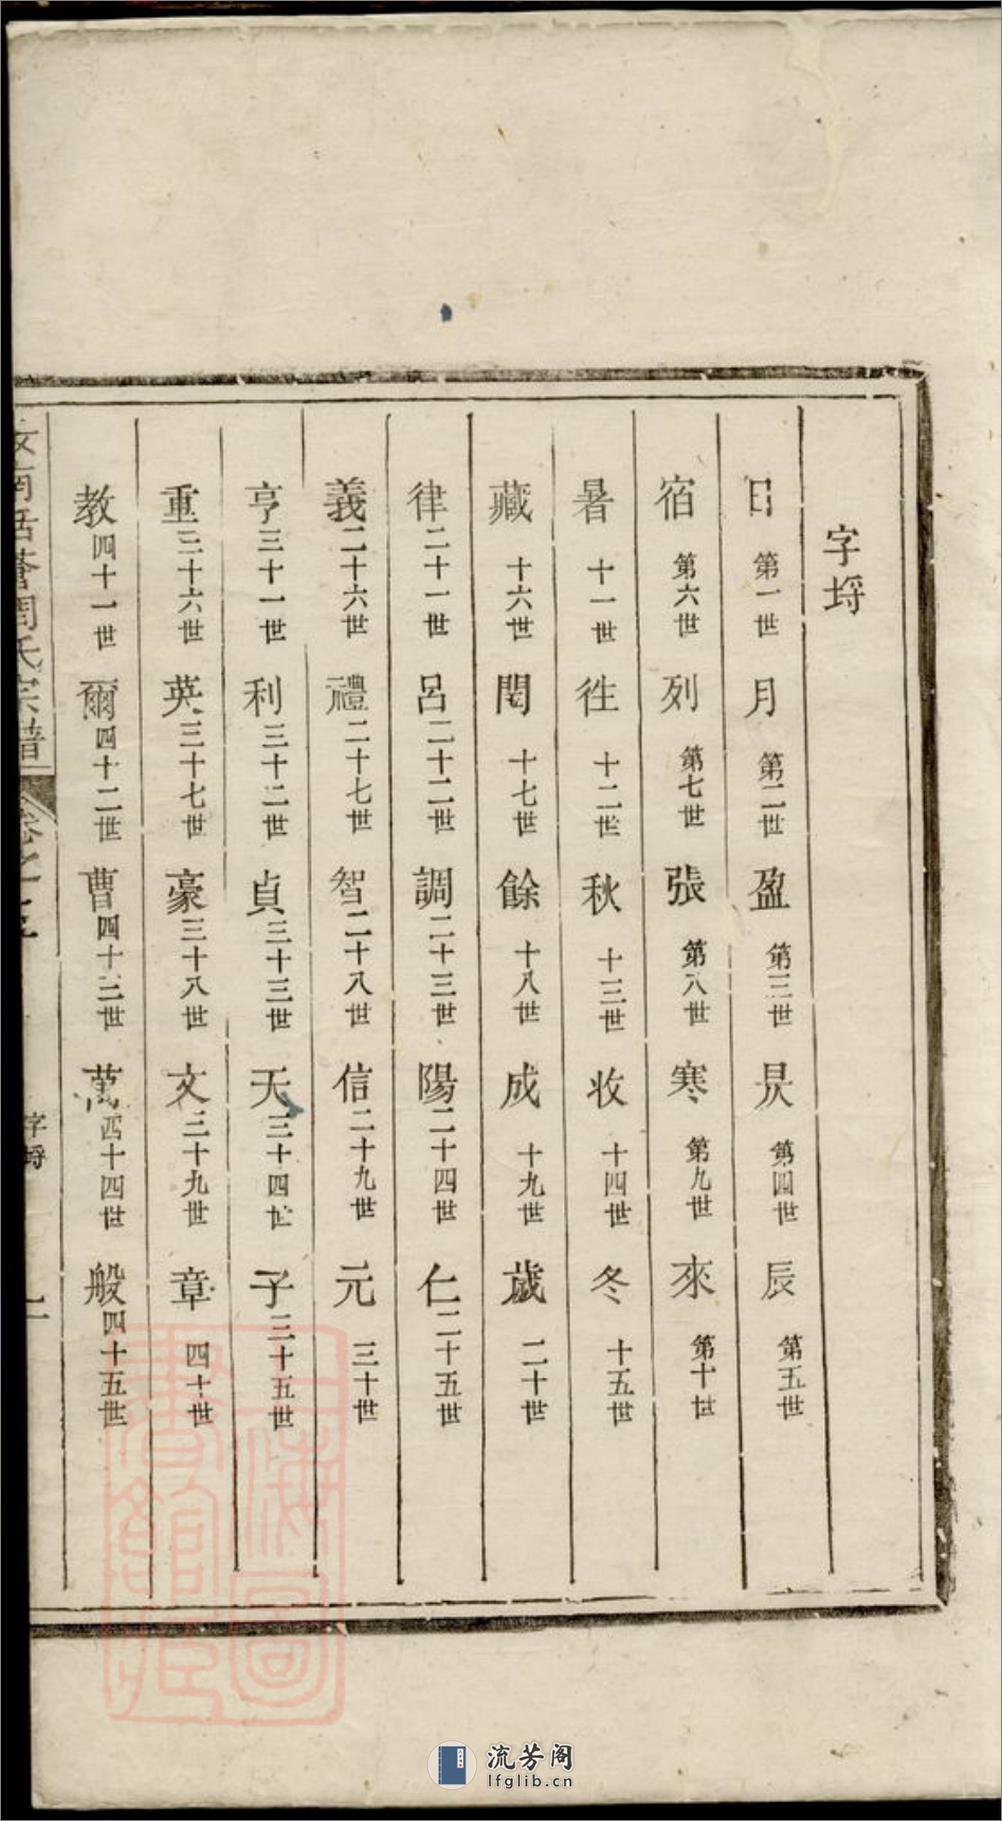 字埒
日第一世月第二世盈第三世昃第四世辰第五世
宿第六世列第七世張第八世寒第九世來第十世
暑十一世徃十二世秋十三世收十四世冬十五世
藏十六世閏十七世餘十八世成十九世歲二十世
律二十一世呂二十二世調二十三世陽二十四世仁二十五世
義二十六世禮二十七世智二十八世信二十九世元三十世
亨三十一世利三十二世貞三十三世天三十四世子三十五世
重三十六世英三十七世豪三十八世文三十九世章四十世
教四十一世爾四十二世曹四十三世萬四十四世般四十五世
南括蒼周氏宗譜 卷之 字埒
上海圖書館藏
流芳阁
lfglib.cn